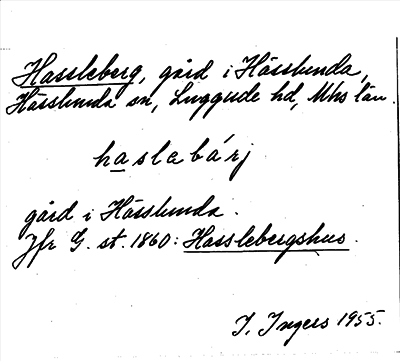 Hassleberg, gård i Hässlunda,
Hässlunda sn, Luggude hd, Mhs län.
haslabárj
gård i Hässlunda.
Jfr G. st. 1860: Hasslebergshus.
I. Ingers 1955.